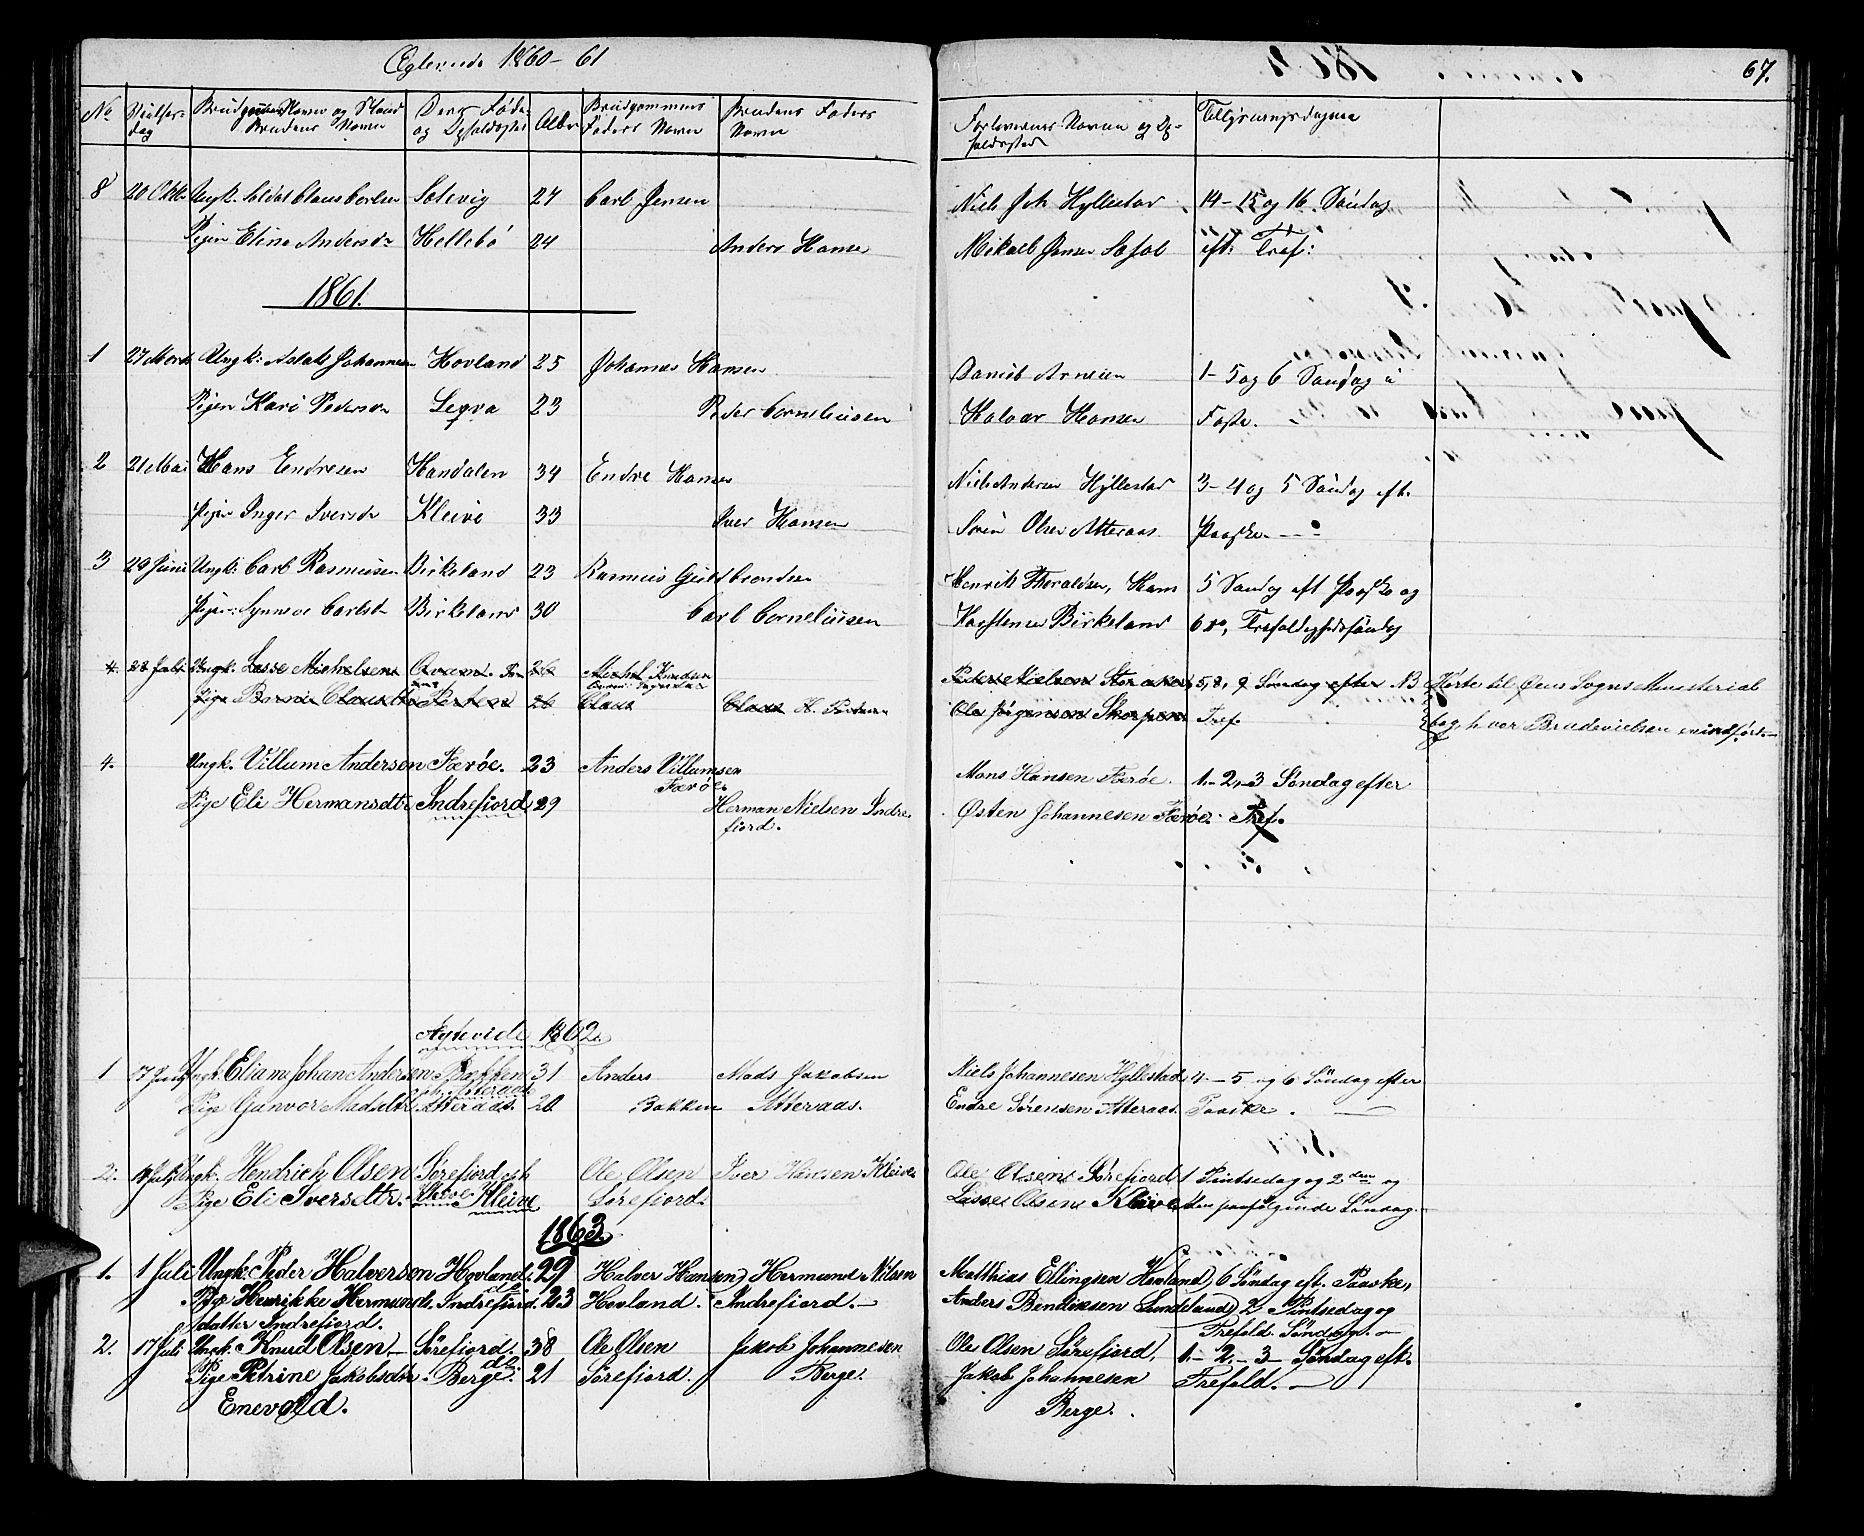 Ægteviede 1860-61
67.
No
Vielses-
dag
Brudgommens Navn og Stand
Brudens Navn
Deres Føde-
og Opholdssted
Alder
Brudgommens
Faders Navn
Brudens Faders
Navn
Forlovernes Navne og Op-
holdssted
Tillysningsdagene
8 20 Oktb Ungk. Soldat Claus Carlsen Solevig 27 Carl Jensen Niels Joh Hyllestad 14-15 og 16 Søndag
Pigen Elina Andersdr Hellebö 24 Anders Hansen Mikael Jensen eft: Tref:
1861.
1 27 Marts Ungk: Aslak Johannesen Hovland 25 Johannes Hansen Daniel Arnesen 1-5 og 6 Søndag i
Pigen Kari Pedersdr 23 Peder Corneliussen Halvor Hansen Faste.
2 21 Mai Hans Endresen Handalen 34 Endre Hansen Niels Andersen Hyllestad 3-4 og 5 Søndag eft.
Pigen Inger Iversdr Kleive 33 Iver Hansen Sörin Olsen Atteraas Paaske.
3 29 Juni Ungk: Carl Rasmussen Birkeland 23 Rasmus Guldbrandsen Henrik Thoraldsen, Hans 5 Søndag eft Paaske og
Pigen: Synneve Carlsdr Birkeland 30 Carl Corneliussen Karstensen Birkeland 6 do, Trefoldighedssöndag
4. 28 Juli Ungk. Lasse Michelsen Qvam. 26 Michel Knudsen Peder Nielsen Storaker 5, 8, 9 Søndag efter NB Hørte til Øens Sogns Ministerial
Pige Clausdtr 26 Claus Claus H. Ole Jørgensen Tref. bog, hvor Brudevielsen
4. Ungk. Villum Andersen Færøe. 23 Anders Villumsen Mons Hansen Færøe. 1-2-3 Søndag efter
Færøe
Pige Eli Hermansdtr Indrefiord 29 Herman Nielsen Indre Østen Johannesen Færøe. Tref.
fiord.
Ægteviede 1862.
1 17 Ungk. Elias Johan Andersen Bakken 31 Anders Mads Jakobsen Niels Johannesen Hyllestad, 4-5 og 6 Søndag efter
Pige Gunvor Madsdtr Atteraas. 20 Bakken Atteraas. Endre Sørensen Atteraas. Paaske.
2. Ungk. Hendrich Olsen Sørefiord Ole Olsen Iver Hansen Kleive Ole Olsen Sørefiord 1 Pintsedag og 2den og
Pige Eli Iversdtr. Kleive Sørefiord. Lasse Olsen Kleive den paafølgende Søndag.
1863.
1. 1 Juli Ungk. Peder Halversen Hovland. 29 Halver Hansen Hermund Nilsen Matthias Ellingsen Hovland, 6 Søndag eft. Paaske,
Pige Henrikke Hermunds Indrefiord. 23 Hovland. Indrefiord.- Anders Bendiksen Sundeland 2 Pintsedag og
datter Indrefiord. Trefold. Søndag.-
2. 17 Juli Ungk. Knud Olsen- Sørefiord. 38 Ole Olsen Jakob Johannesen Ole Olsen Sørefiord, 1.-2.-3- Søndag eft.
Pige Petrine Jakobsdtr. Berge. 21 Sørefiord. Berge. Jakob Johannesen Trefold.-
Enevold. Berge.